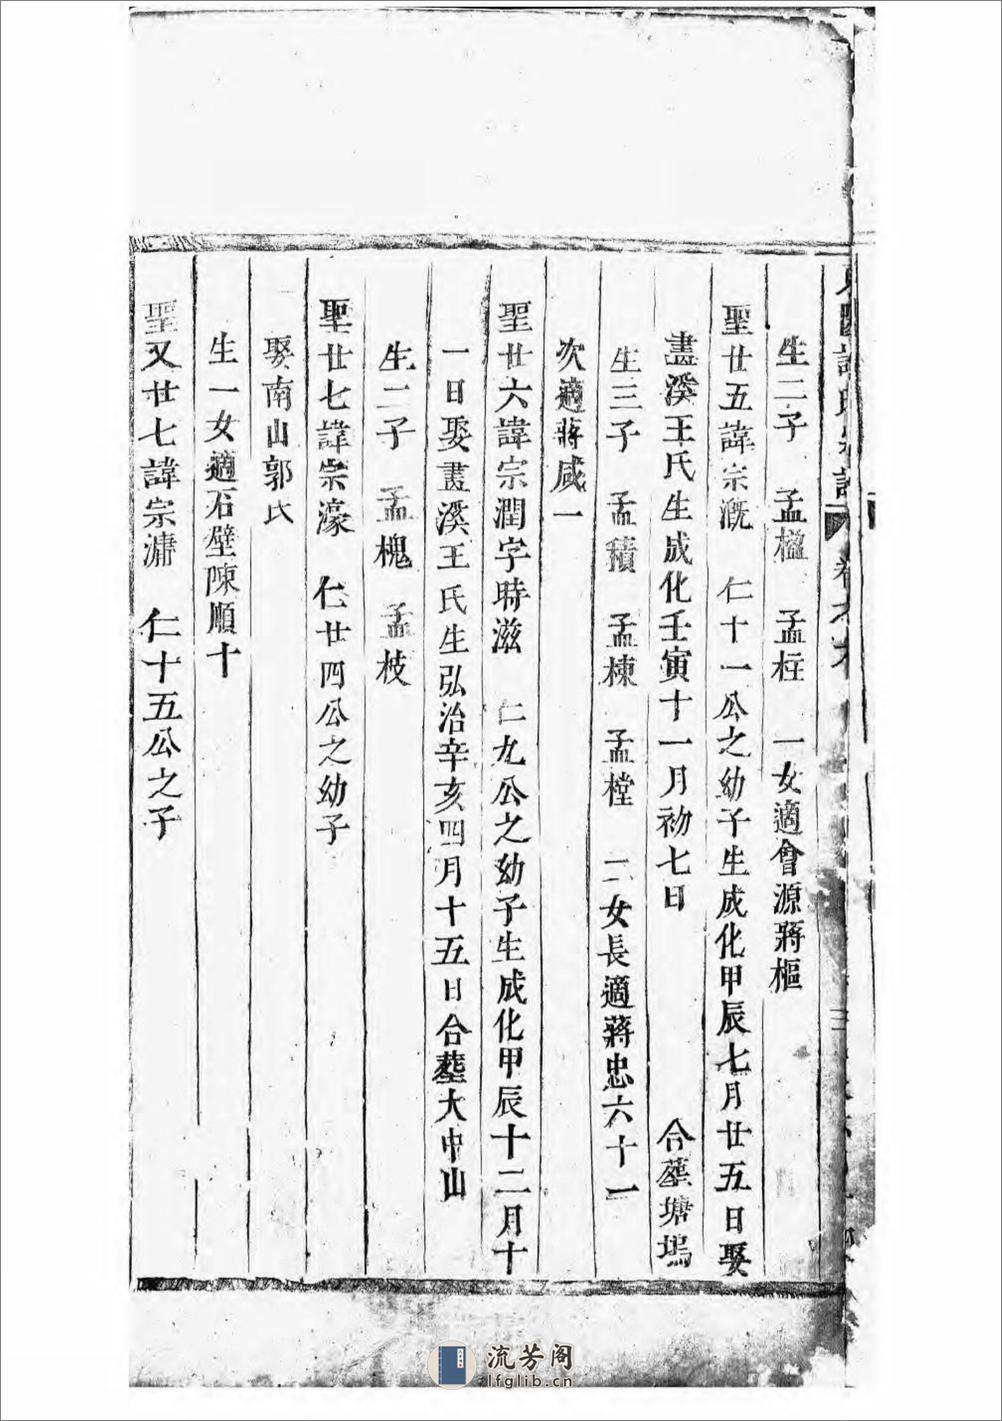 生二子　孟楹　孟柱　一女適會源蔣樞
聖廿五諱宗溉　仁十一公之幼子生成化甲辰七月廿五日娶
畫溪王氏生成化壬寅十一月初七日　合塟塘塢
生三子　孟積　孟棟　孟樘　二女長適蔣忠六十一
次適蔣咸一
聖廿六諱宗潤字時滋　仁九公之幼子生成化甲辰十二月十
一日娶畫溪王氏生弘治辛亥四月十五日合塟大中山
生二子　孟槐　孟枝
聖廿七諱宗濠　仁廿四公之幼子
娶南山郭氏
生一女適石壁陳順十
聖又廿七諱宗滽　仁十五公之子
流芳阁
lfglib.cn